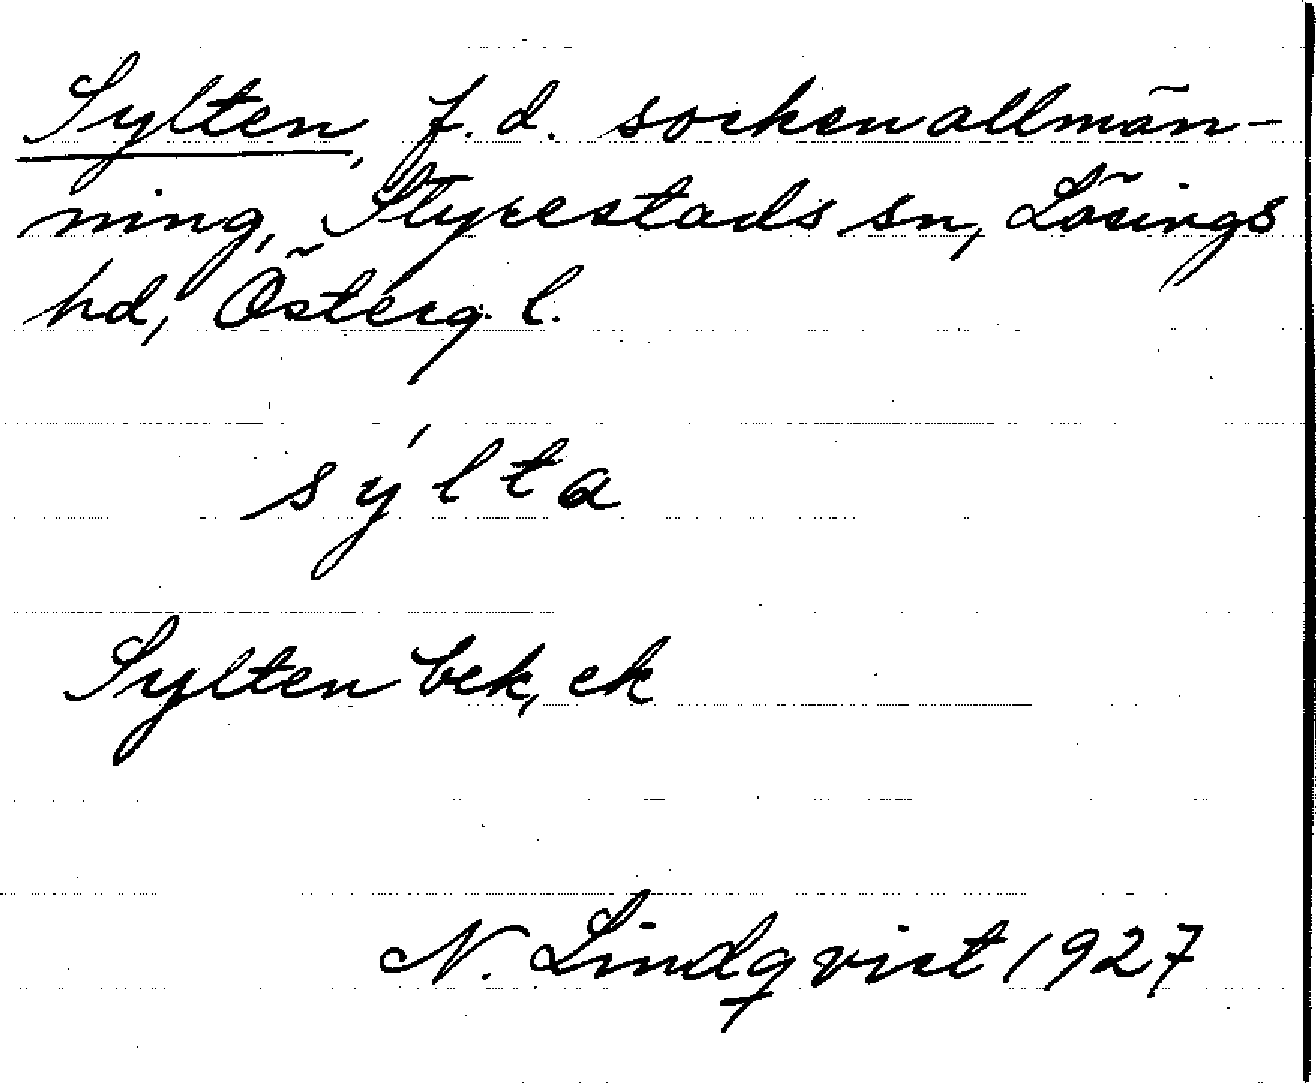 Sylten, f.d. sockenallmän-
ning, Styrestads sn, Lösings
hd, Österg. l.
sýlta
Sylten bek, ek
N. Lindqvist 1927